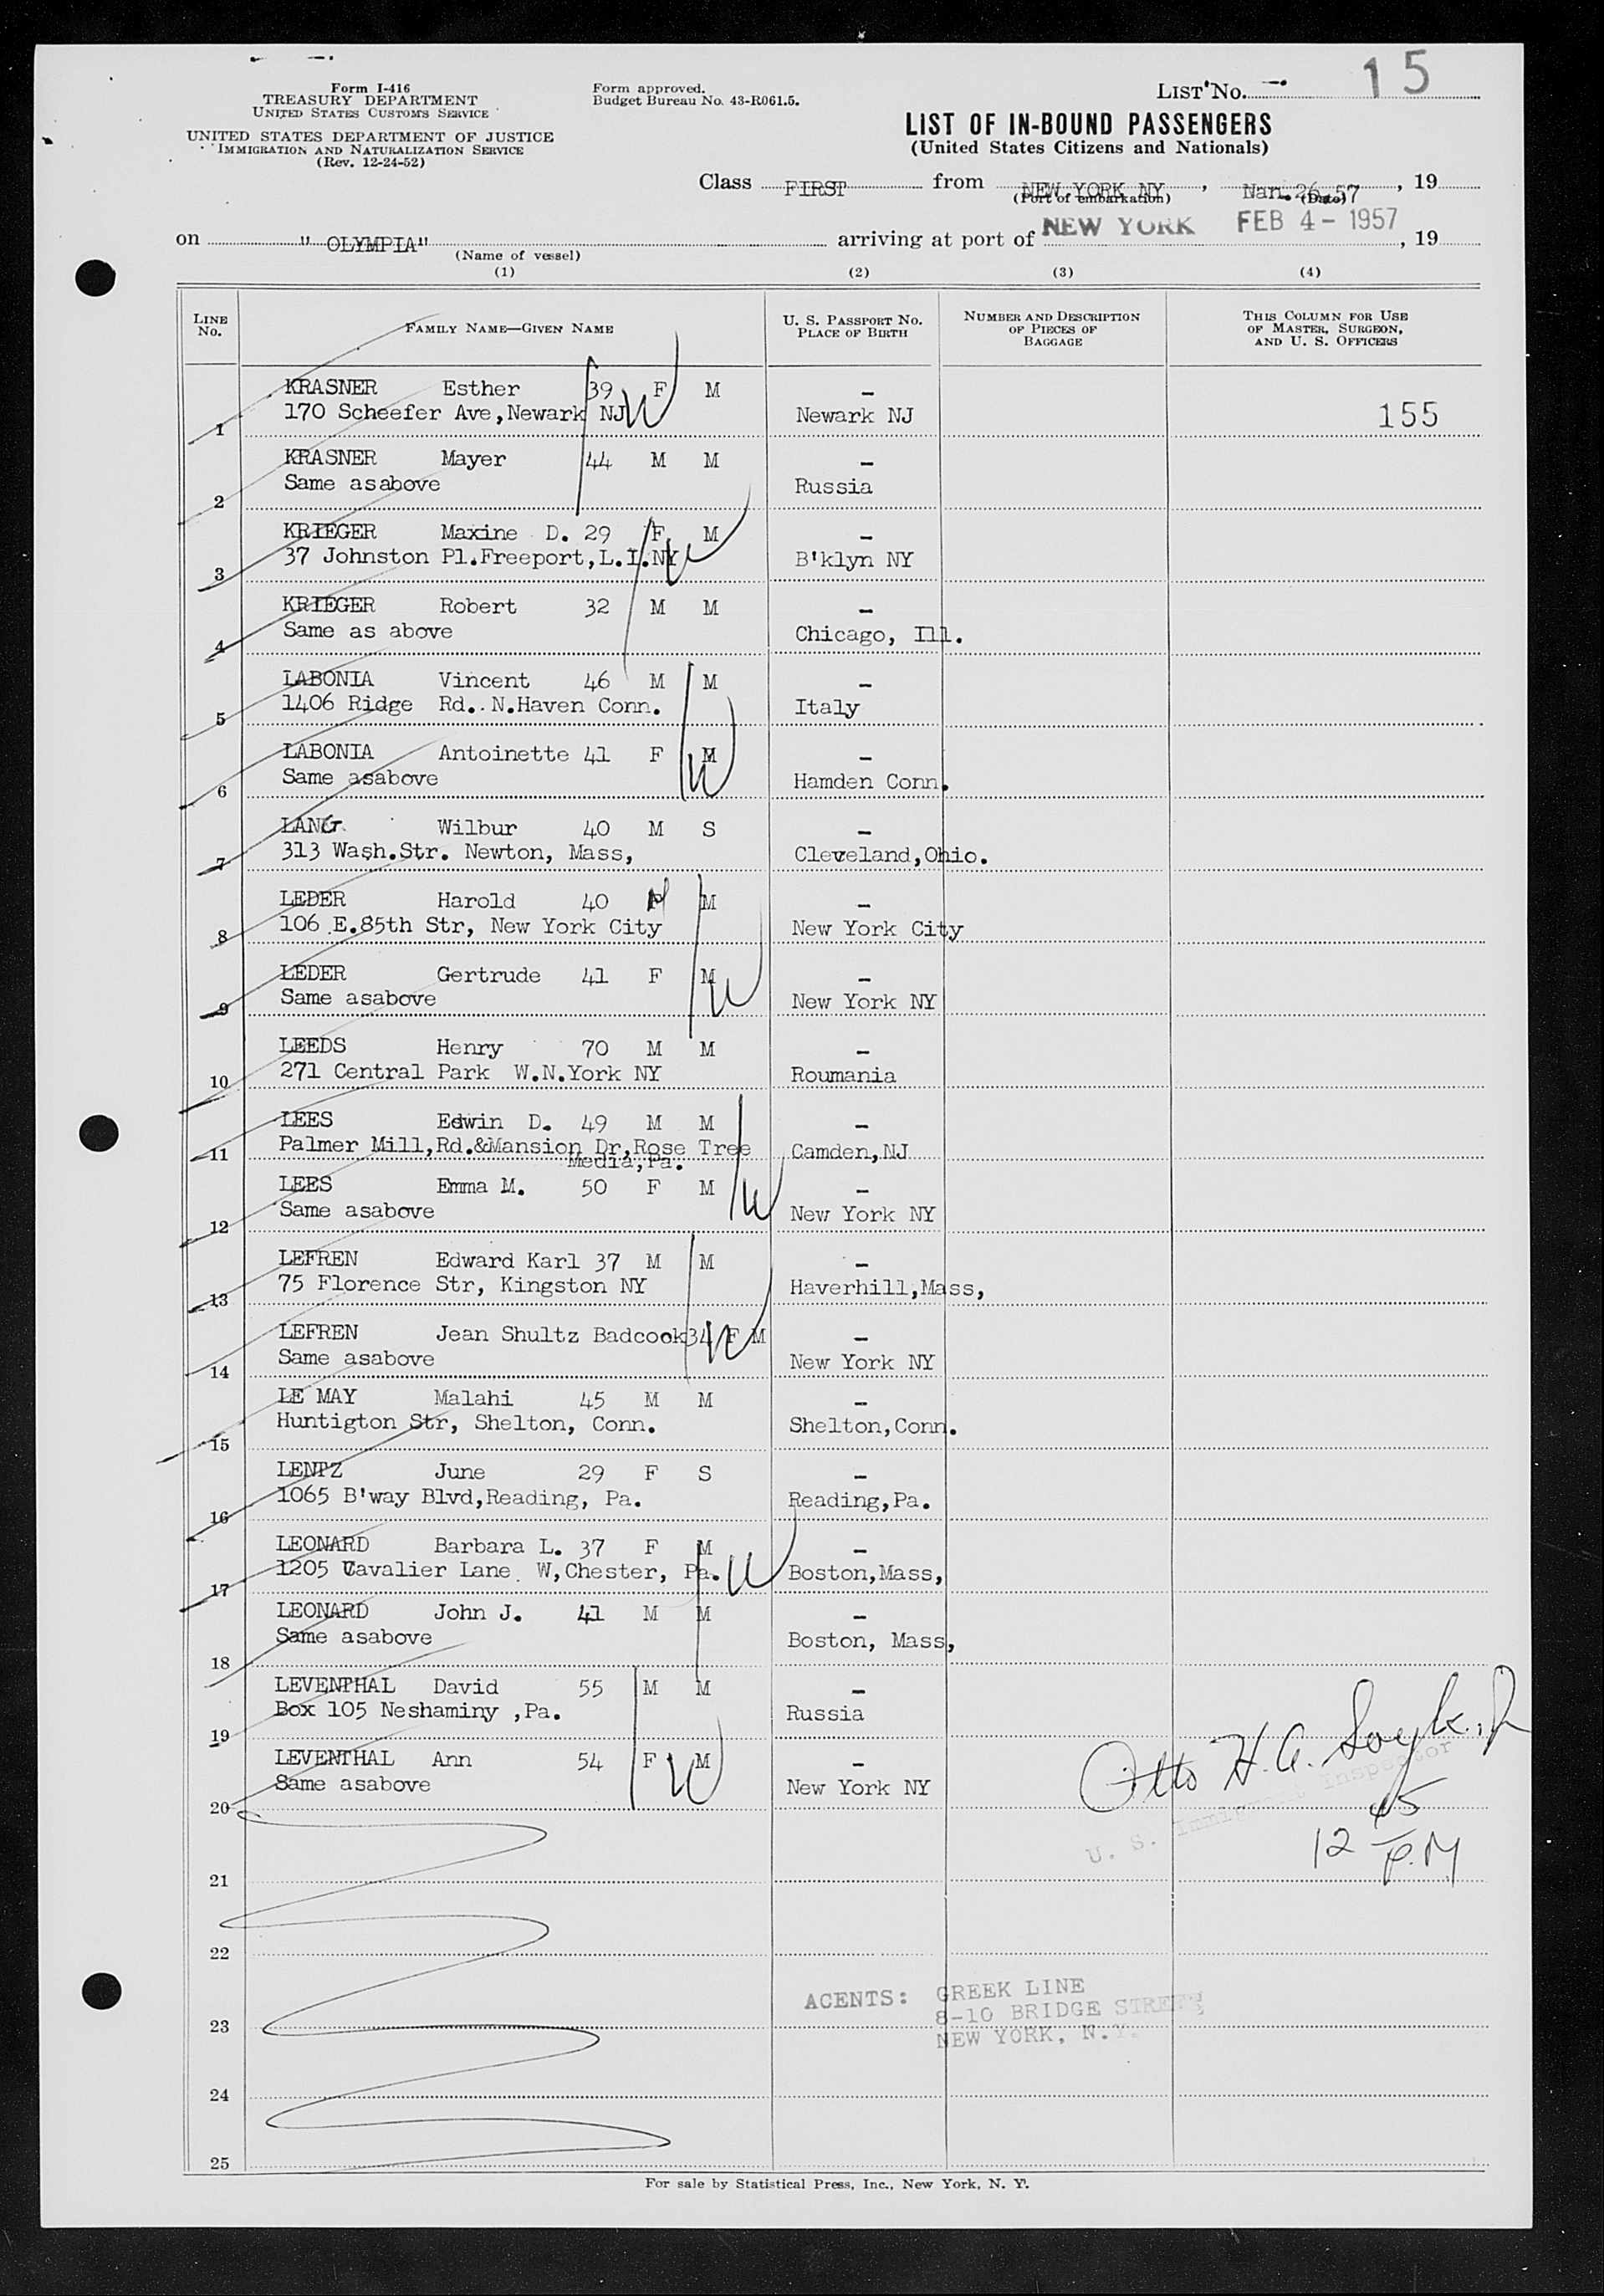 15
Form I-416
TREASURY DEPARTMENT
UNITED STATES CUSTOMS SERVICE
UNITED STATES DEPARTMENT OF JUSTICE
IMMIGRATION AND NATURALIZATION SERVICE
(Rev. 12-24-52)
Form approved.
Budget Bureau No. 43-R061.5.
LIST No.
LIST OF IN-BOUND PASSENGERS
(United States Citizens and Nationals)
Class FIRST from NEW YORK NY, Nan. 26, 57, 19
(Port of embarkation) (Date)
on " OLYMPIA" arriving at port of NEW YORK FEB 4 - 1957, 19
(Name of vessel)
(1) (2) (3) (4)
LINE No. FAMILY NAME—GIVEN NAME U. S. PASSPORT No. PLACE OF BIRTH NUMBER AND DESCRIPTION OF PIECES OF BAGGAGE THIS COLUMN FOR USE OF MASTER, SURGEON, AND U. S. OFFICERS
KRASNER Esther 39 F M –
1 170 Scheefer Ave,Newark NJ Newark NJ 155
KRASNER Mayer 44 M M –
2 Same asabove Russia
KRIEGER Maxine D. 29 F M –
3 37 Johnston Pl.Freeport,L.I.NY B'klyn NY
KRIEGER Robert 32 M M –
4 Same as above Chicago, Ill.
LABONIA Vincent 46 M M –
5 1406 Ridge Rd. N.Haven Conn. Italy
LABONIA Antoinette 41 F M –
6 Same asabove Hamden Conn.
LANG Wilbur 40 M S –
7 313 Wash.Str. Newton, Mass, Cleveland,Ohio.
LEDER Harold 40 M M –
8 106 E.85th Str, New York City New York City
LEDER Gertrude 41 F M –
9 Same asabove New York NY
LEEDS Henry 70 M M –
10 271 Central Park W.N.York NY Roumania
LEES Edwin D. 49 M M –
11 Palmer Mill,Rd.&Mansion Dr,Rose Tree Camden,NJ
Media,Pa.
LEES Emma M. 50 F M –
12 Same asabove New York NY
LEFREN Edward Karl 37 M M –
13 75 Florence Str, Kingston NY Haverhill,Mass,
LEFREN Jean Shultz Badcock 34 F M –
14 Same asabove New York NY
LE MAY Malahi 45 M M –
15 Huntigton Str, Shelton, Conn. Shelton,Conn.
LENTZ June 29 F S –
16 1065 B'way Blvd,Reading, Pa. Reading,Pa.
LEONARD Barbara L. 37 F M –
17 1205 Cavalier Lane W,Chester, Pa. Boston,Mass,
LEONARD John J. 41 M M –
18 Same asabove Boston, Mass,
LEVENTHAL David 55 M M –
19 Box 105 Neshaminy ,Pa. Russia
LEVENTHAL Ann 54 F M –
20 Same asabove New York NY
Otto H. A.
U. S. Immigrant Inspector
12 45 P.M
21
22
23
24
25
AGENTS: GREEK LINE
8-10 BRIDGE STREET
NEW YORK, N.Y.
For sale by Statistical Press, Inc., New York, N. Y.